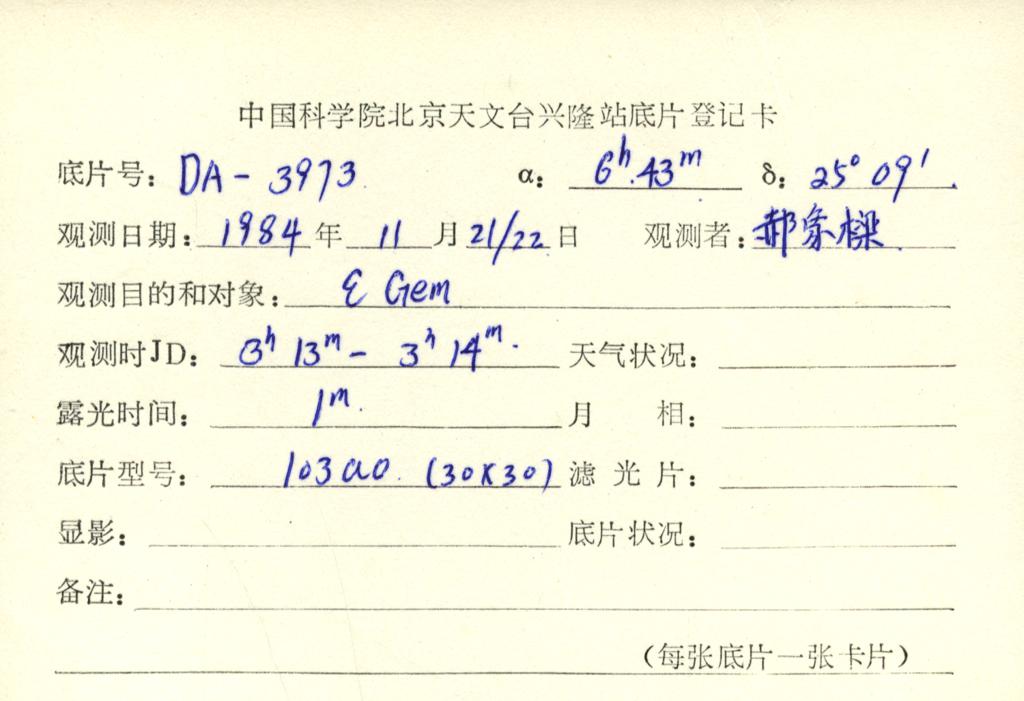 中国科学院北京天文台兴隆站底片登记卡
底片号: DA - 3973. α: 6ʰ.43ᵐ δ: 25° 09′.
观测日期: 1984 年 11 月 21/22 日 观测者: 郝象樑.
观测目的和对象: ε Gem
观测时JD: 3ʰ 13ᵐ - 3ʰ 14ᵐ. 天气状况:
露光时间: 1ᵐ. 月 相:
底片型号: 103a0. (30X30) 滤 光 片:
显影: 底片状况:
备注:
(每张底片一张卡片)